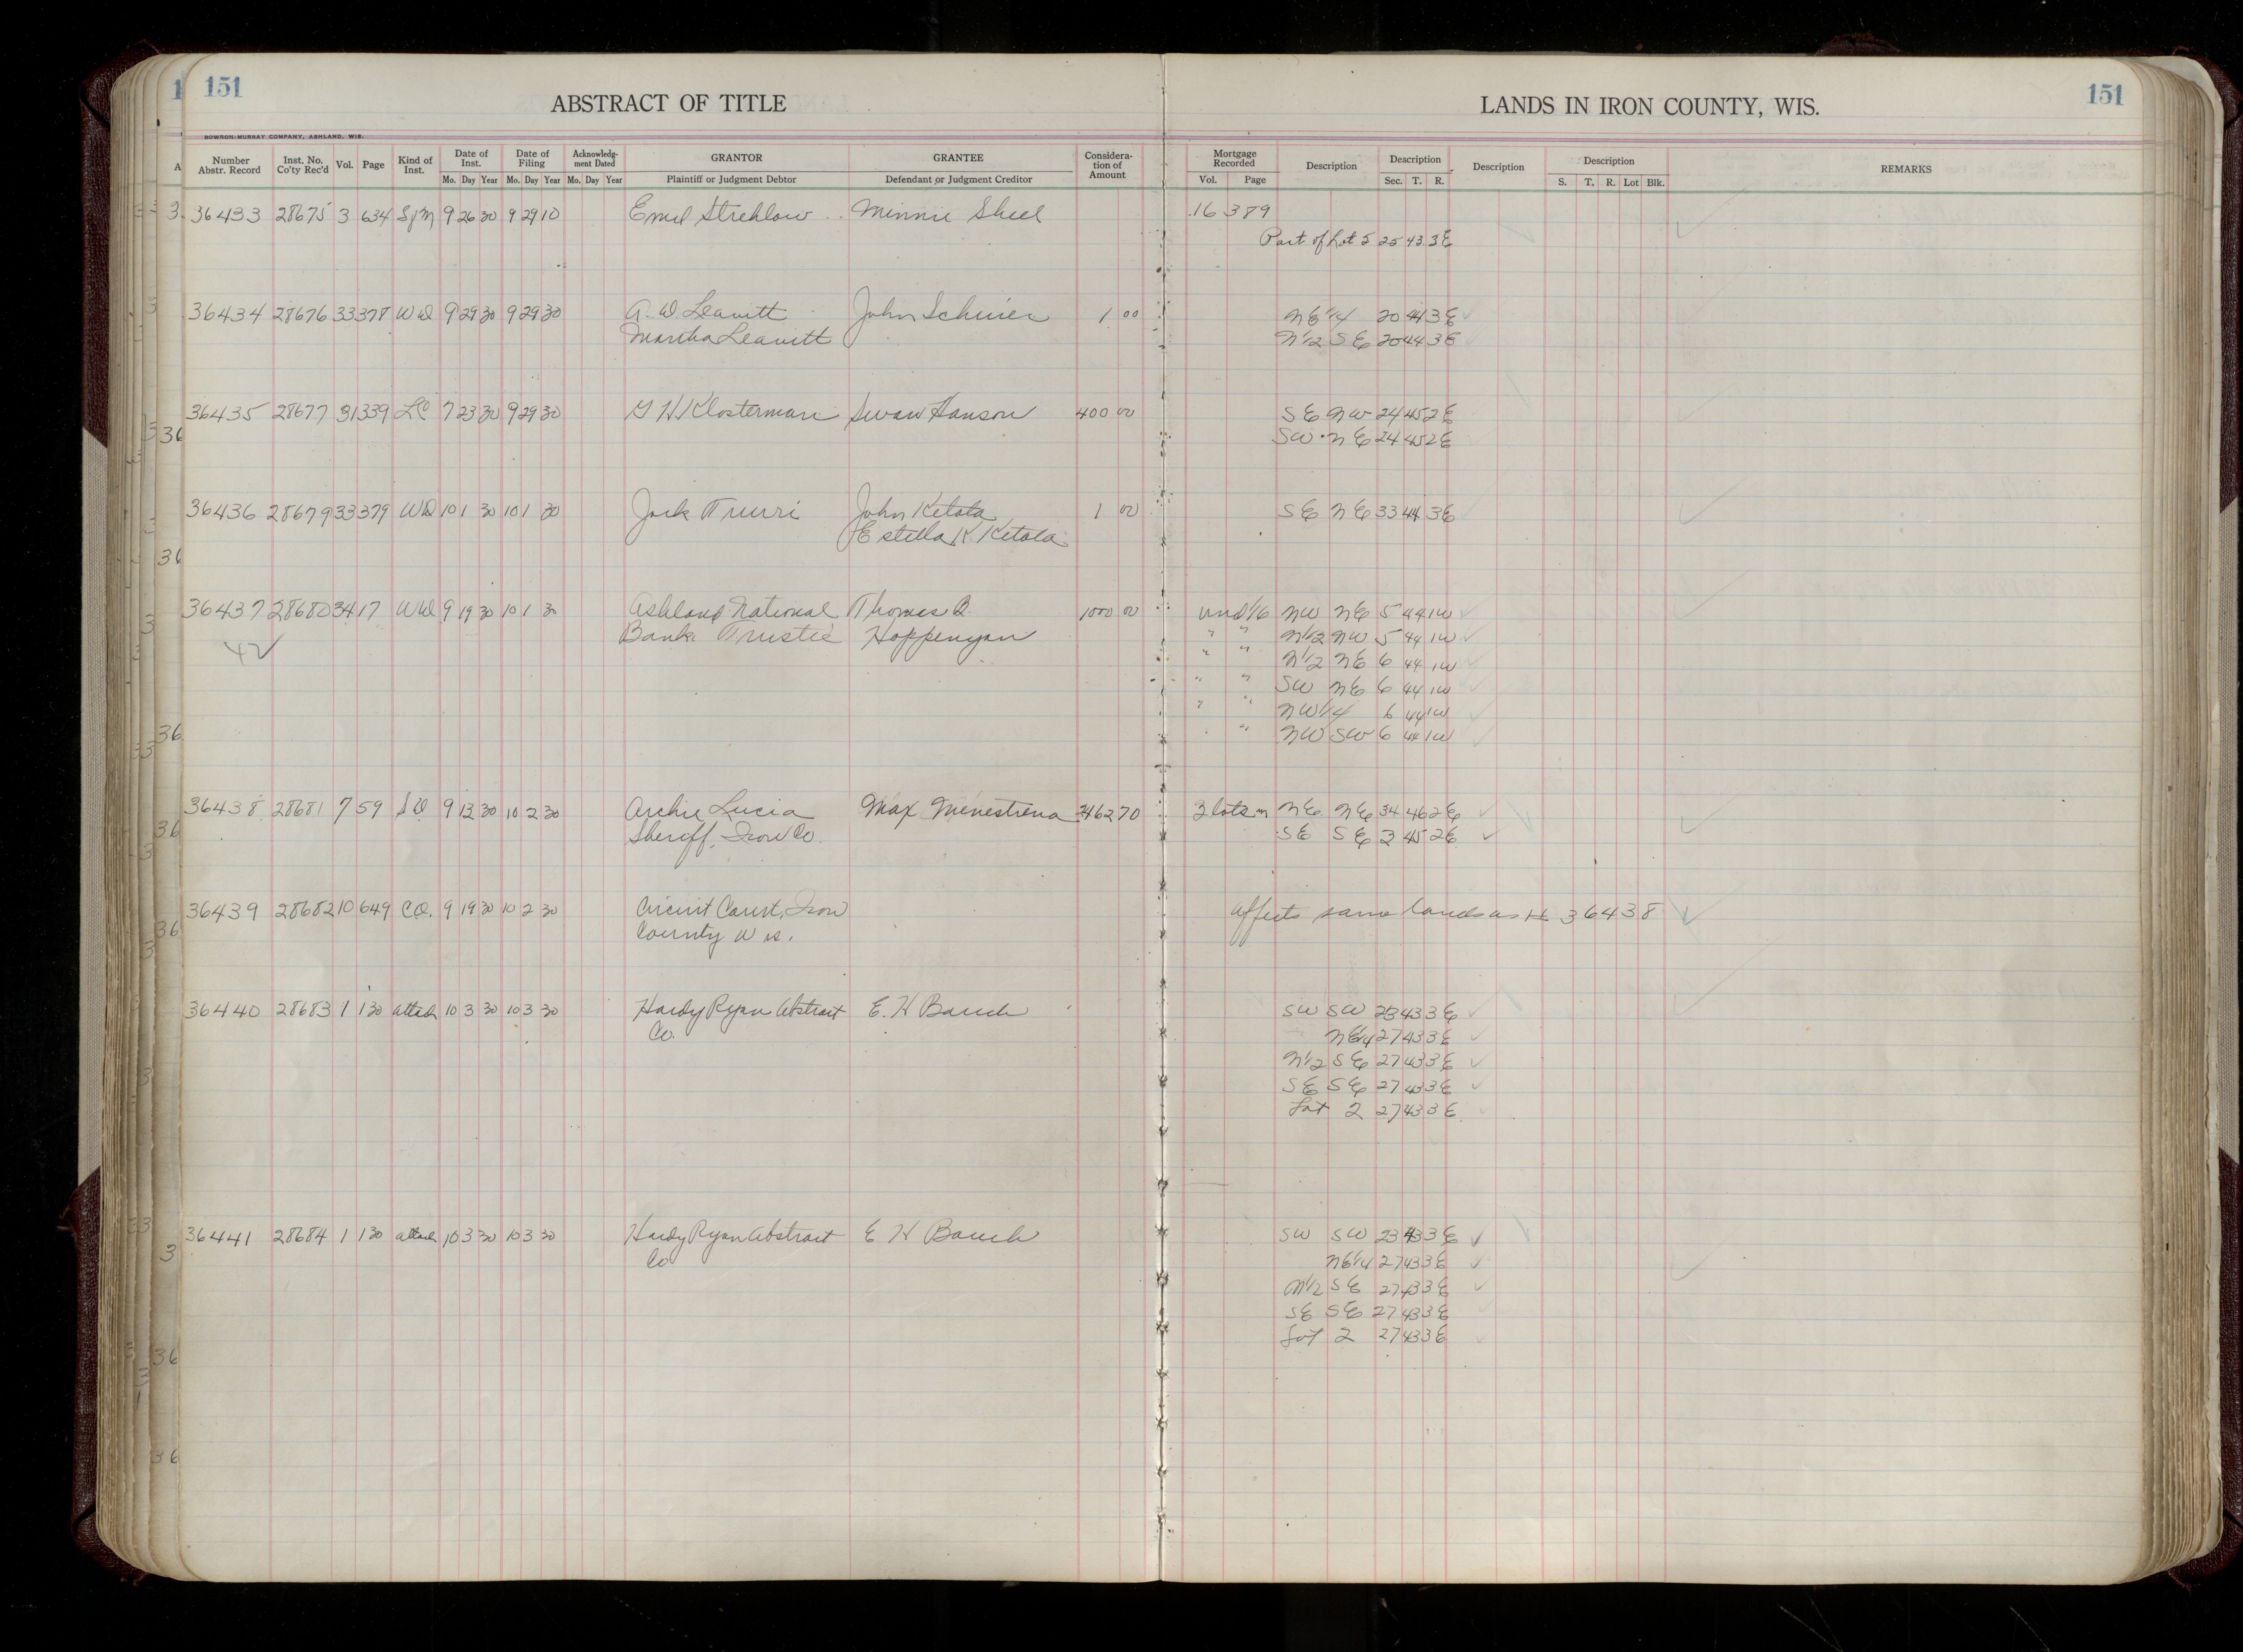 151
ABSTRACT OF TITLE
LANDS IN IRON COUNTY, WIS.
151
BOWRON-MURRAY COMPANY, ASHLAND, WIS.
Number Abstr. Record Inst. No. Co'ty Rec'd Vol. Page Kind of Inst. Date of Inst. Date of Filing Acknowledgment Dated GRANTOR GRANTEE Consideration of Amount Mortgage Recorded Description Description Description Description REMARKS
Mo. Day Year Mo. Day Year Mo. Day Year Plaintiff or Judgment Debtor Defendant or Judgment Creditor Vol. Page Sec. T. R. S. T. R. Lot Blk.
36433 28675 3 634 9 26 30 9 29 10 Emil Strehlow Minnie Sheel 16 389
Part of Lot 5 25 43 3E
36434 28676 33 378 WD 9 29 30 9 29 30 A. D. Leavitt John Scheirer 1 00 NE 1/4 20 44 3E
Martha Leavitt N 1/2 SE 20 44 3E
36435 28677 31 339 LC 7 23 30 9 29 30 G H Klosterman Swan Hanson 400 00 SE NW 24 45 2E
SW NE 24 45 2E
36436 28679 33 379 WD 10 1 30 10 1 30 John Ketola 1 00 SE NE 33 44 3E
Estella K Ketola
36437 28680 34 17 WD 9 19 30 10 1 30 Ashland National Thomas B. 1000 00 und 1/6 NW NE 5 44 1W
Bank Trustee Hoppenyan " " N 1/2 NW 5 44 1W
42 " " N 1/2 NE 6 44 1W
" " SW NE 6 44 1W
" " NW 1/4 6 44 1W
" " NW SW 6 44 1W
36438 28681 7 59 SD 9 12 30 10 2 30 Archie Lucia Max Menestrena 3462 70 2 lots in NE NE 34 46 2E
Sheriff, Iron Co. SE SE 3 45 2E
36439 28682 10 649 CO. 9 19 30 10 2 30 Circuit Court, Iron affects same lands as # 36438
County Wis.
36440 28683 1 130 attach 10 3 30 10 3 30 Hardy Ryan Abstract E. H Bauch SW SW 23 43 3E
Co. NE 1/4 27 43 3E
N 1/2 SE 27 43 3E
SE SE 27 43 3E
Lot 2 27 43 3E
36441 28684 1 130 attach 10 3 30 10 3 30 Hardy Ryan Abstract E H Bauch SW SW 23 43 3E
Co NE 1/4 27 43 3E
N 1/2 SE 27 43 3E
SE SE 27 43 3E
Lot 2 27 43 3E